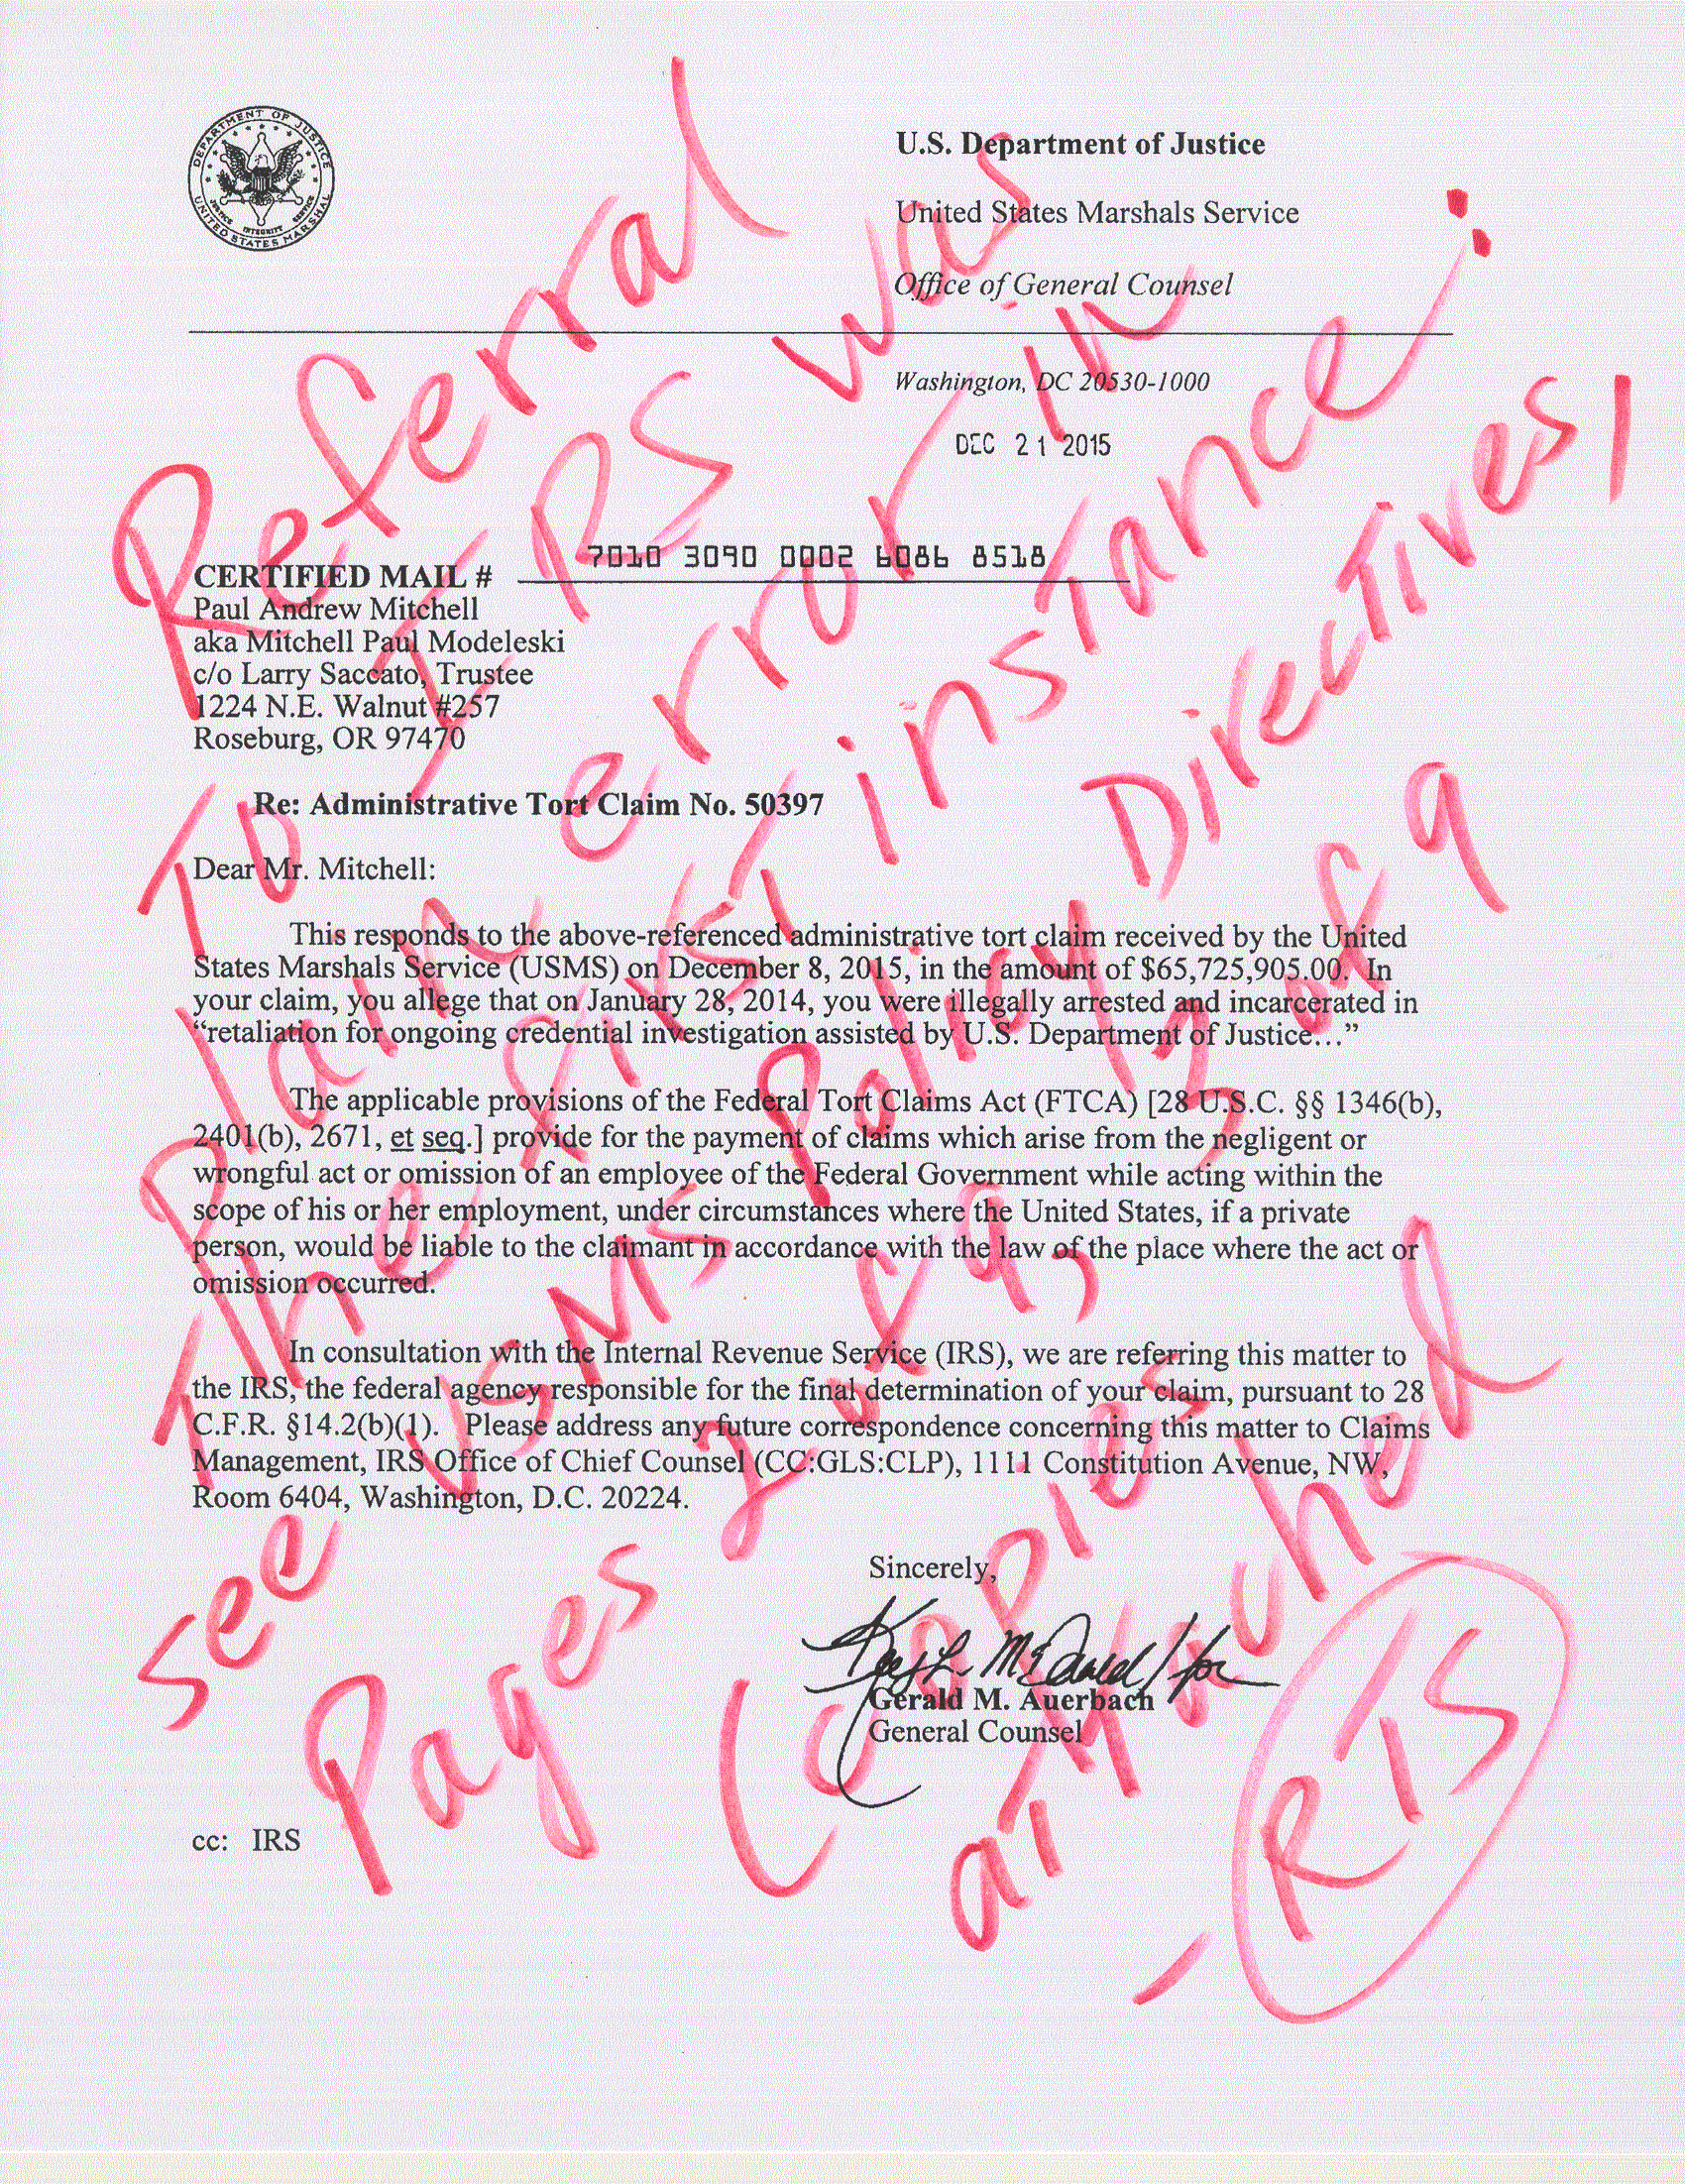 DEPARTMENT OF JUSTICE
UNITED STATES MARSHAL
JUSTICE INTEGRITY SERVICE
U.S. Department of Justice
United States Marshals Service
Office of General Counsel
Washington, DC 20530-1000
DEC 21 2015
CERTIFIED MAIL # 7010 3090 0002 6086 8518
Paul Andrew Mitchell
aka Mitchell Paul Modeleski
c/o Larry Saccato, Trustee
1224 N.E. Walnut #257
Roseburg, OR 97470
Re: Administrative Tort Claim No. 50397
Dear Mr. Mitchell:
This responds to the above-referenced administrative tort claim received by the United
States Marshals Service (USMS) on December 8, 2015, in the amount of $65,725,905.00. In
your claim, you allege that on January 28, 2014, you were illegally arrested and incarcerated in
“retaliation for ongoing credential investigation assisted by U.S. Department of Justice…”
The applicable provisions of the Federal Tort Claims Act (FTCA) [28 U.S.C. §§ 1346(b),
2401(b), 2671, et seq.] provide for the payment of claims which arise from the negligent or
wrongful act or omission of an employee of the Federal Government while acting within the
scope of his or her employment, under circumstances where the United States, if a private
person, would be liable to the claimant in accordance with the law of the place where the act or
omission occurred.
In consultation with the Internal Revenue Service (IRS), we are referring this matter to
the IRS, the federal agency responsible for the final determination of your claim, pursuant to 28
C.F.R. §14.2(b)(1). Please address any future correspondence concerning this matter to Claims
Management, IRS Office of Chief Counsel (CC:GLS:CLP), 1111 Constitution Avenue, NW,
Room 6404, Washington, D.C. 20224.
Sincerely,
Gerald M. Auerbach
General Counsel
cc: IRS
Referral
To IRS was
Plain error in
The first instance:
See USMS Policy Directives,
Pages 2 of 9, 3 of 9
(copies
attached
RTS